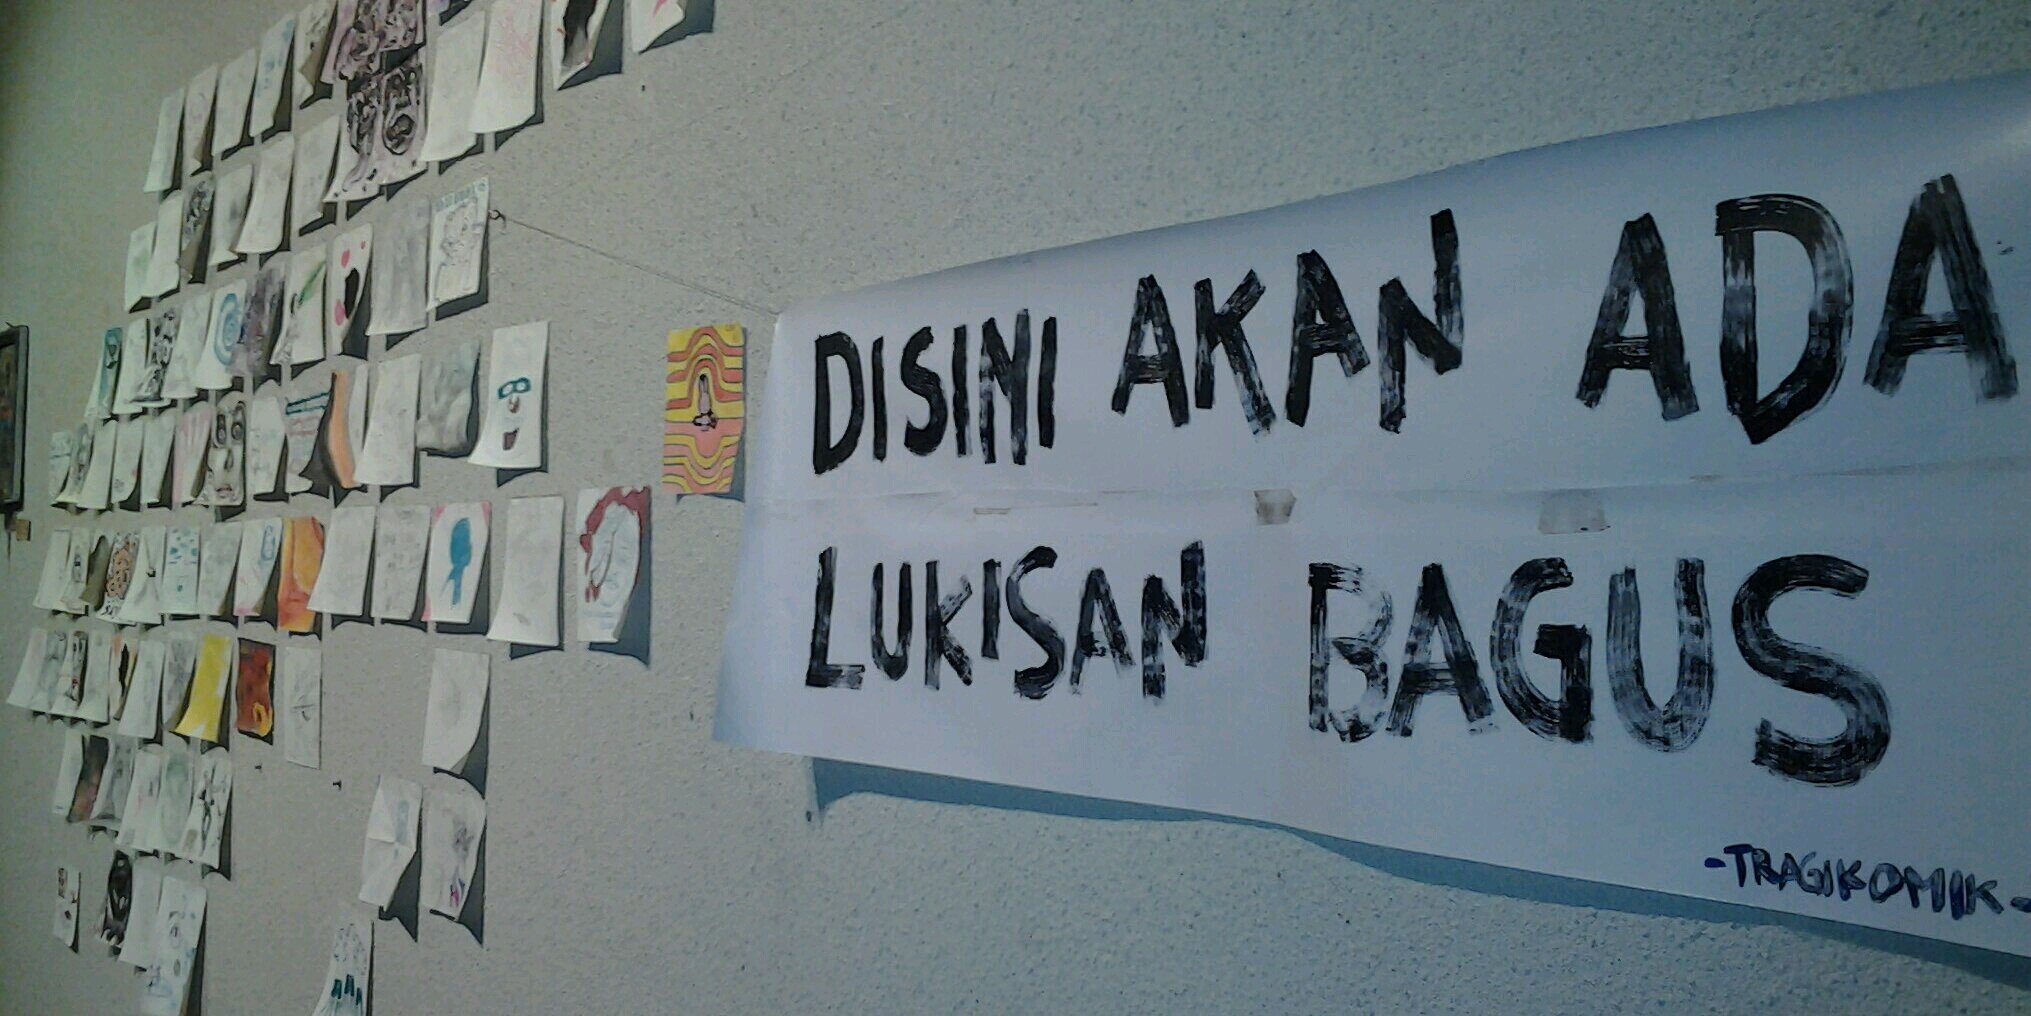 DISINI AKAN ADA
LUKISAN BAGUS
-TRAGIKOMIK-